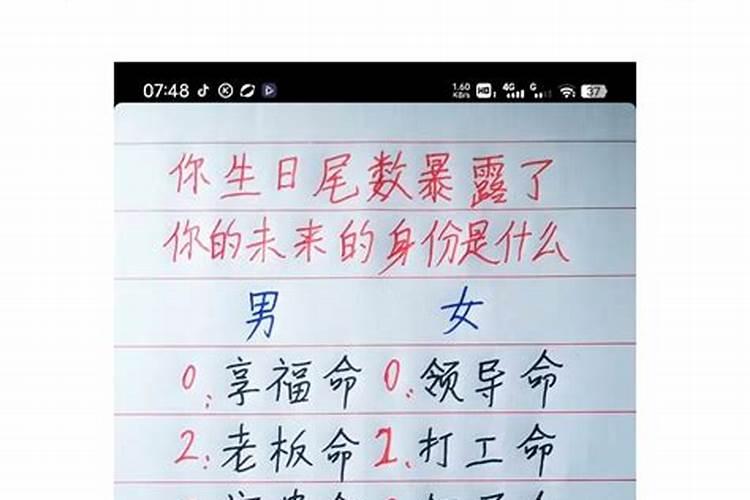 07:48 1.60 KB/s HD 4G G 37
你生日尾数暴露了
你的未来的身份是什么
男 女
0: 享福命 0: 领导命
2: 老板命 1、打工命